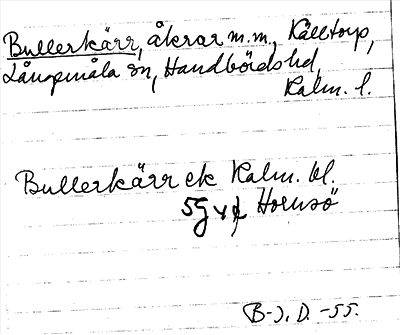 Bullerkärr, åkrar m.m., Källtorp,
Långemåla sn, Handbörds hd,
Kalm. l.
Bullerkärr ek Kalm. bl.
5G v f Hornsö
B-J. D. -55.